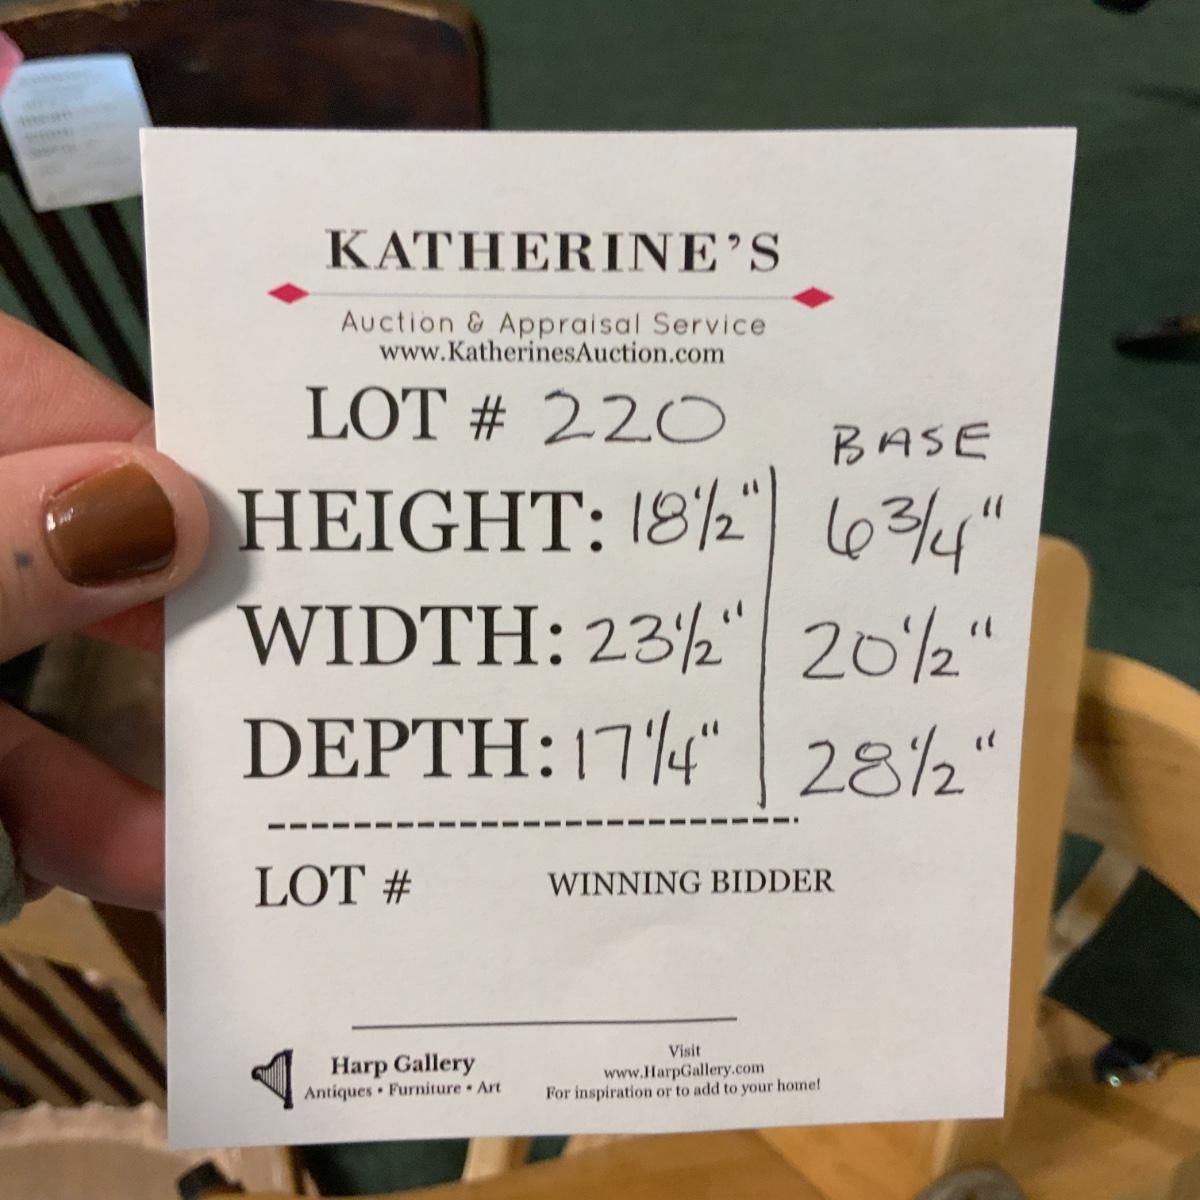 KATHERINE'S
Auction & Appraisal Service
www.KatherinesAuction.com
LOT # 220
BASE
HEIGHT: 18 1/2" 6 3/4"
WIDTH: 23 1/2" 20 1/2"
DEPTH: 17 1/4" 28 1/2"
LOT # WINNING BIDDER
Harp Gallery
Antiques • Furniture • Art
Visit
www.HarpGallery.com
For inspiration or to add to your home!